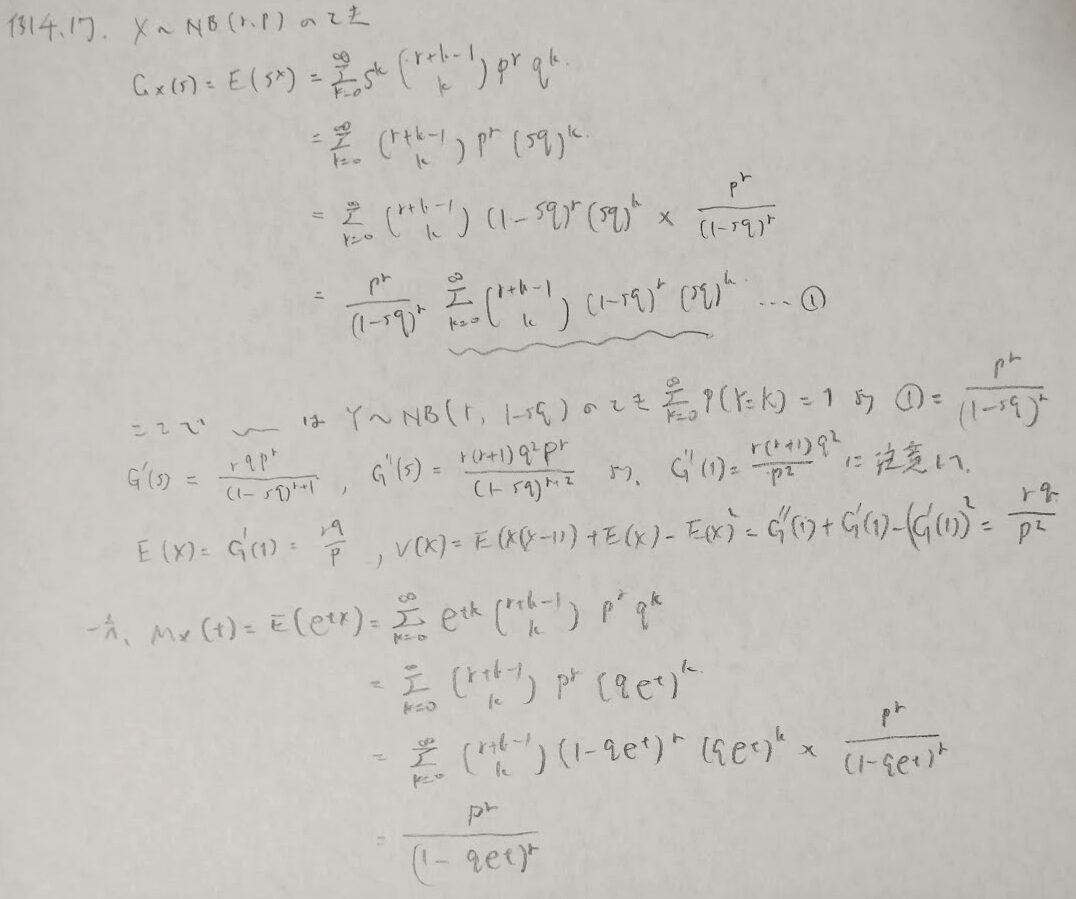 例4.17. X~NB(r,p)のとき
G_X(s) = E(s^X) = Σ_{k=0}^{∞} s^k (r+k-1 k) p^r q^k.
= Σ_{k=0}^{∞} (r+k-1 k) p^r (sq)^k.
= Σ_{k=0}^{∞} (r+k-1 k) (1-sq)^r (sq)^k × p^r/(1-sq)^r
= p^r/(1-sq)^r Σ_{k=0}^{∞} (r+k-1 k) (1-sq)^r (sq)^k ... ①
ここで 〰 は Y~NB(r, 1-sq)のとき Σ_{k=0}^{∞} P(Y=k) = 1 より ① = p^r/(1-sq)^r
G'(s) = rqp^r/(1-sq)^{r+1}, G''(s) = r(r+1)q²p^r/(1-sq)^{r+2} より、G''(1) = r(r+1)q²/p² に注意して、
E(X) = G'(1) = rq/p, V(X) = E(X(X-1)) + E(X) - E(X)² = G''(1) + G'(1) - (G'(1))² = rq/p²
一方、M_X(t) = E(e^{tX}) = Σ_{k=0}^{∞} e^{tk} (r+k-1 k) p^r q^k
= Σ_{k=0}^{∞} (r+k-1 k) p^r (qe^t)^k.
= Σ_{k=0}^{∞} (r+k-1 k) (1-qe^t)^r (qe^t)^k × p^r/(1-qe^t)^r
= p^r/(1-qe^t)^r